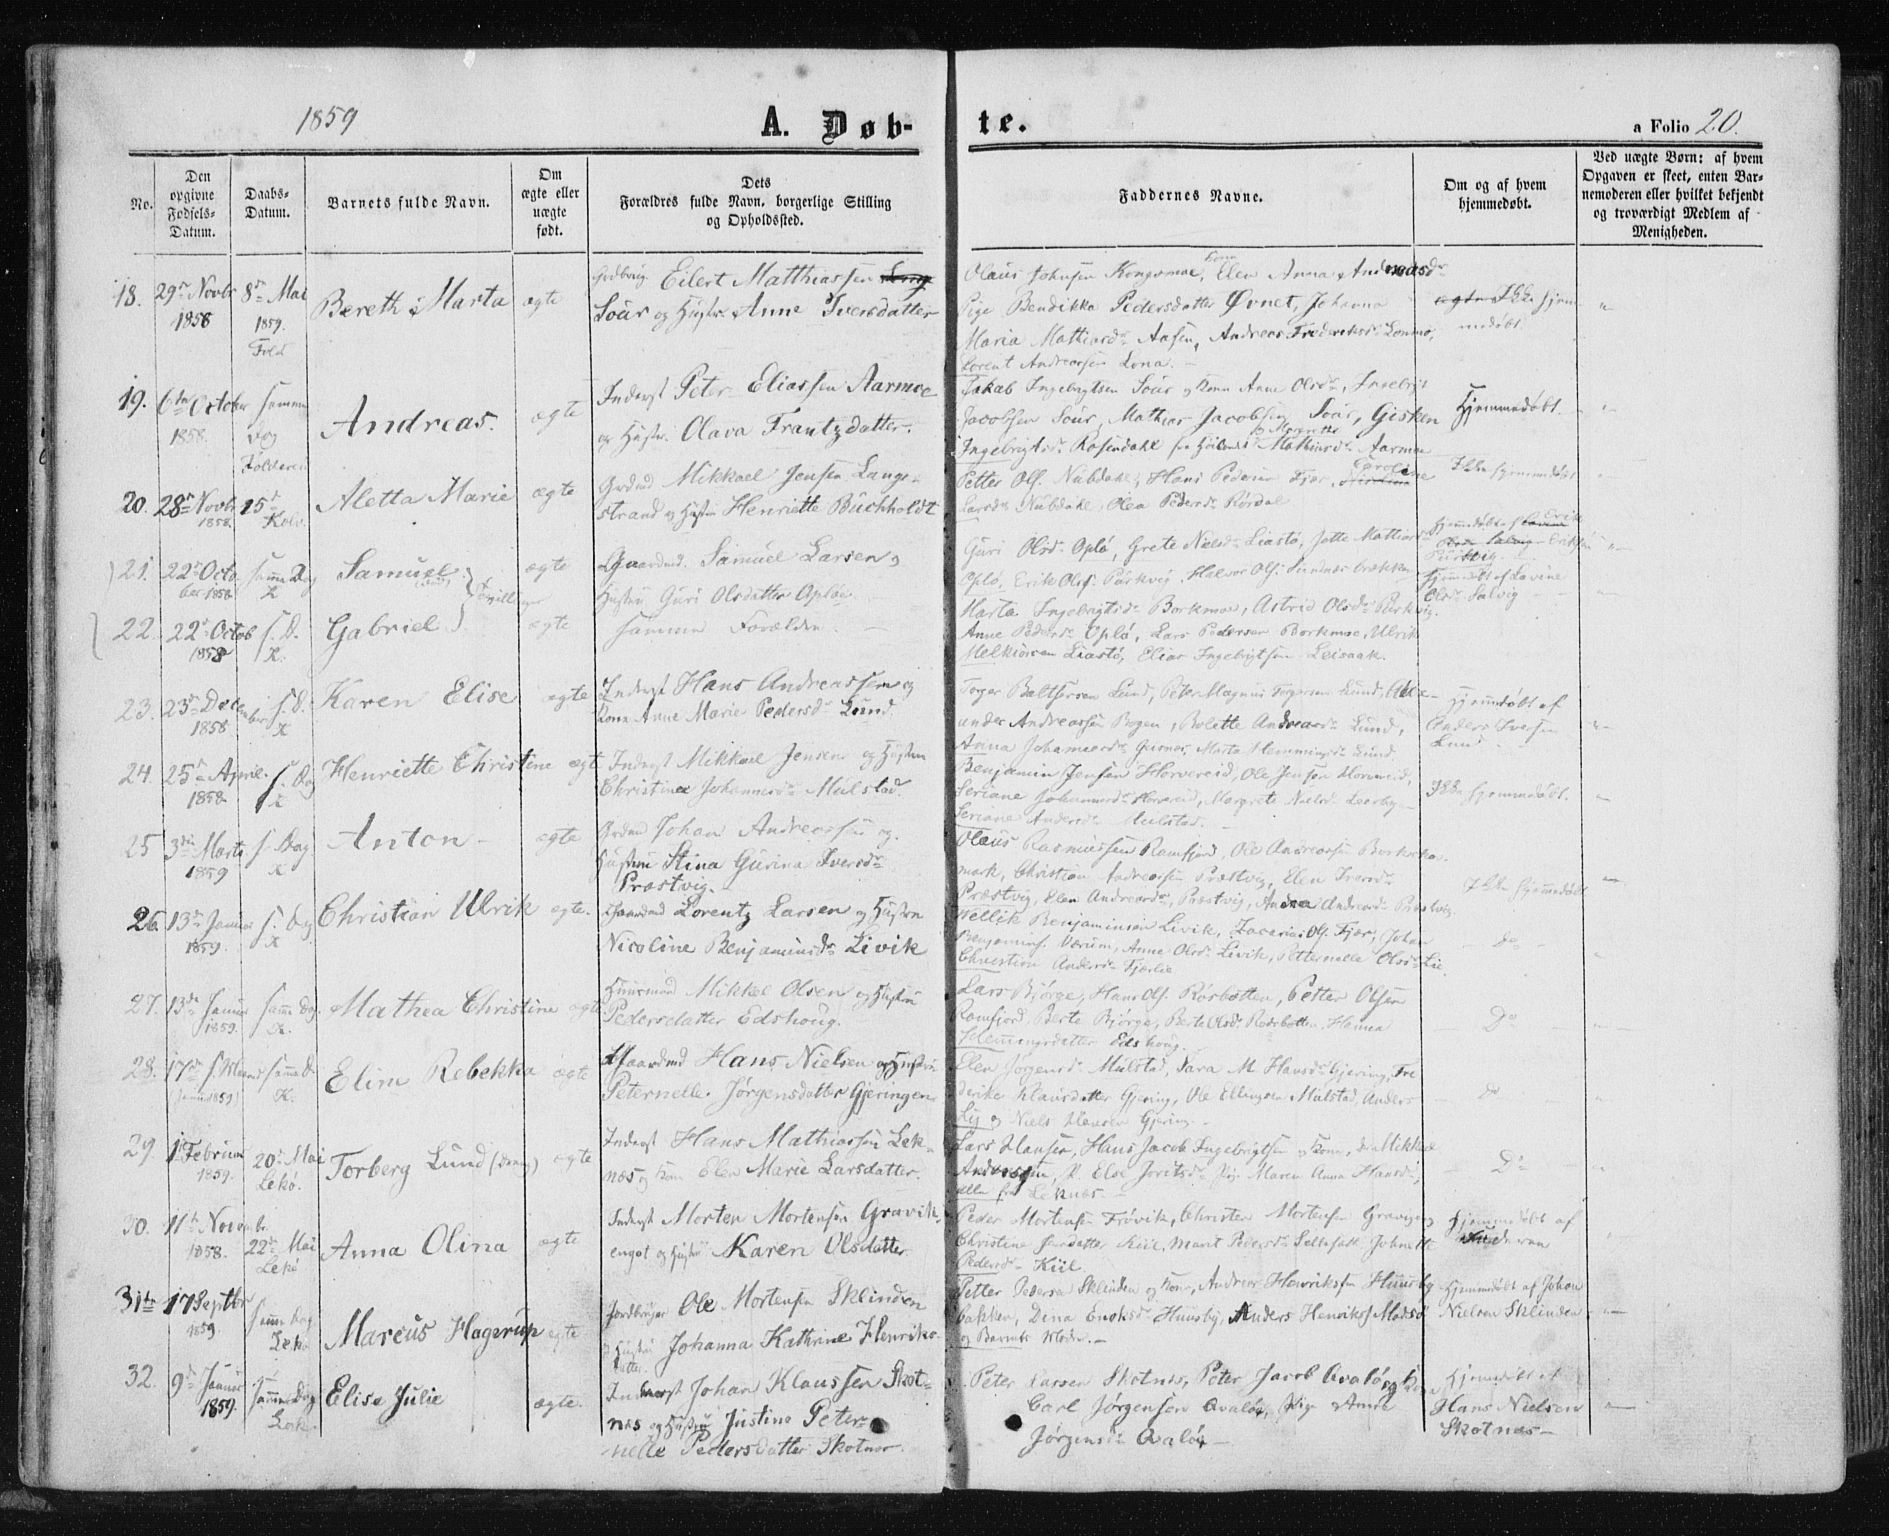 1859
A. Døb-
te.
a Folio 20.
No.
Den opgivne Fødsels-Datum.
Daabs-Datum.
Barnets fulde Navn.
Om ægte eller uægte født.
Dets Forældres fulde Navn, borgerlige Stilling og Opholdssted.
Faddernes Navne.
Om og af hvem hjemmedøbt.
Ved uægte Børn: af hvem Opgaven er skeet, enten Barnemoderen eller hvilket bekjendt og troværdigt Medlem af Menigheden.
18. 29de Novbr 1858 8de Mai 1859. Fold
Bereth Marta
ægte
Eilert Matthiassen
Sour og Hustr. Anne Iversdatter
Olaus Johnsen Kongsmoe, Elen Anna Andreasdr
Pige Bendikka Pedersdatter Øvnet, Johanna
Maria Mathiasdr Aasen, Andreas Frederiksdr
Lorent Andreassen Lona.
Ikke hjemmedøbt.
19. 6te October 1858. samme Dag
Andreas.
ægte
Inderst Peter Eliassen Aarmoe
og Hustr. Olava Frantzdatter.
Jakob Ingebrigtsen Sour og Kone Anne Olsdr, Ingebrigt
Jacobsen Sour, Mathias Jacobsen Sour, Gisken
Ingebrigtsdr Rosendahl
Hjemmedøbt.
20. 28de Novbr 1858. 15de Kolv.
Aletta Marie
ægte
Mikkael Jensen Lange-
strand og Hustr Henriette Buchholdt
Petter Ols. Nubdahl, Hans Pedersen Fjær, Caroline
Larsdr Nubdahl, Olea Pedersdr Rørdal
Ikke hjemmedøbt
21. 22de October 1858 samme Dag K
Samuel
Tvillinger
ægte
Gaardmd. Samuel Larsen og
Hustru Guri Olsdatter Opløe
Guri Olsdr Oplø, Grete Nielsdr Liastø, Jotte Mathiasdr
Oplø, Erik Olsdr Purkvig, Halvor Ols.
22. 22de Octob 1858 s. D. K.
Gabriel
ægte
samme Forældre
Marta Ingebrigtsdr Borkmoe, Astrid Olsdr Purkvig.
Anne Pedersdr Oplø, Lars Pedersen Borkmoe, Ulrik
Melkiorsen Liastø, Elias Ingebrigtsen Leisaak.
Hjemmedøbt af Lavine
Olsdr Salvig
23. 23de December 1858 s. D. K
Karen Elise
ægte
Inderst Hans Andreassen og
Kone Anne Marie Pedersdr Lund.
Toger Baltsersen Lund, Peter Magnus Togersen Lund,
ander Andreassen Bogen, Bolette Andreasdr Lund,
Anna Johannesdr Gutvig, Marta Hemmingsdr Lund.
Hjemmedøbt af
Anders Iversen
Lund
24. 25de April 1858 s. Dag K
Henriette Christine
ægte
Inderst Mikkael Jensen og Hustru
Christina Johannesdr Mulstad.
Benjamin Jensen Horvereid, Ole Jensen Horvereid,
Seriane Johannesdr Horvereid, Margrete Nielsdr
Seriane Andersdr Mulstad.
Ikke hjemmedøbt.
25 3die Marts 1859 s. Dag K
Anton
ægte
Johan Andreassen og
Hustru Stina Gurina Iversdr
Præstvig.
Olaus Rasmussen Ramfjord, Ole Andreassen
mark, Christian Andreassen Præstvig, Elen Iversdr
Præstvig, Elen Andreasdr, Præstvig, Andrea Andreasdr Præstvig.
Ikke hjemmedøbt
26. 13de Januar 1859. s. Dag K
Christian Ulrik
ægte.
Gaardmd Lorentz Larsen og Hustru
Nicoline Benjaminsdr Livik
Vellik Benjaminsen Livik, Zacarias Ols. Fjær, Johan
Benjamins. Værum, Anne Olsdr Livik, Petternelle Olsdr Lie
Christian Andersdr Fjærlie
Do
27. 13de Januar 1859. samme Dag K.
Mathea Christine
ægte.
Huusmand Mikkel Olsen og Hustru
Pedersdatter Edshoug.
Lars Bjørge, Hans Ols. Rørbotten, Petter Olsen
Ramfjord, Berte Bjørge, Berte Olsdr Rørbotten, Hanna
Hemmingsdatter Edshoug.
Do
28. 17de Januar 1859 samme D. K.
Elin Rebekka
ægte
Gaardmd Hans Nielsen og Hustru
Peternelle Jørgensdatter Gjeringen
Elen Jørgensdr Mulstad, Sara M. Hansdr Gjering, Fre
derike Klausdatter Gjering, Ole Ellingsen Mulstad, Anders
Lij og Niels Hansen Gjering
Do
29. 1 Februar 1859. 20de Mai Lekø.
Torberg Lund (Dreng)
ægte
Inderst Hans Mathiassen Lek-
næs og Kone Elen Marie Larsdatter.
Lars Hansen, Hans Jacob Ingebrigtsen og Kone, Mikkael
Andreassen, Maren Anna Hansdr,
alle fra Leknæs.
Do
30. 11te Novembr 1858. 22de Mai Lekø
Anna Olina
ægte
Inderst Morten Mortensen Gravik-
enget og Hustru Karen Olsdatter
Peder Mortensen Frøvik, Christen Mortensen Graviken
Christine Jensdatter Kiil, Marit Pedersdr Johnette
Pedersdr Kiil.
Hjemmedøbt af
Faderen
31te 17 Septbr 1859. samme Dag Lekø
Marcus Hagerup
ægte
Jordbruger Ole Mortensen Sklinden
og Hustru Johanna Kathrine Henriks-
datter.
Petter Pedersen Sklinden og Kone, Andreas Henriksen Huusby
bakken, Dina Enoksdr Huusby, Anders Henriks. Madsø
og Barnets Moder.
Hjemmedøbt af Johan
Nielsen Sklinden
32. 9de Januar 1859. samme Dag Lek.
Elise Julie
ægte.
Inderst Johan Klaussen Skot-
næs og Hustru Justina Peter-
nelle Pedersdatter Skotnæs.
Peter Larsen Skotnes, Peter Jacob Qvaløe og Kone
Carl Jørgensen Qvaløe, Pige Anne
Jørgensdr Qvaløe
Hjemmedøbt af
Hans Nielsen
Skotnæs